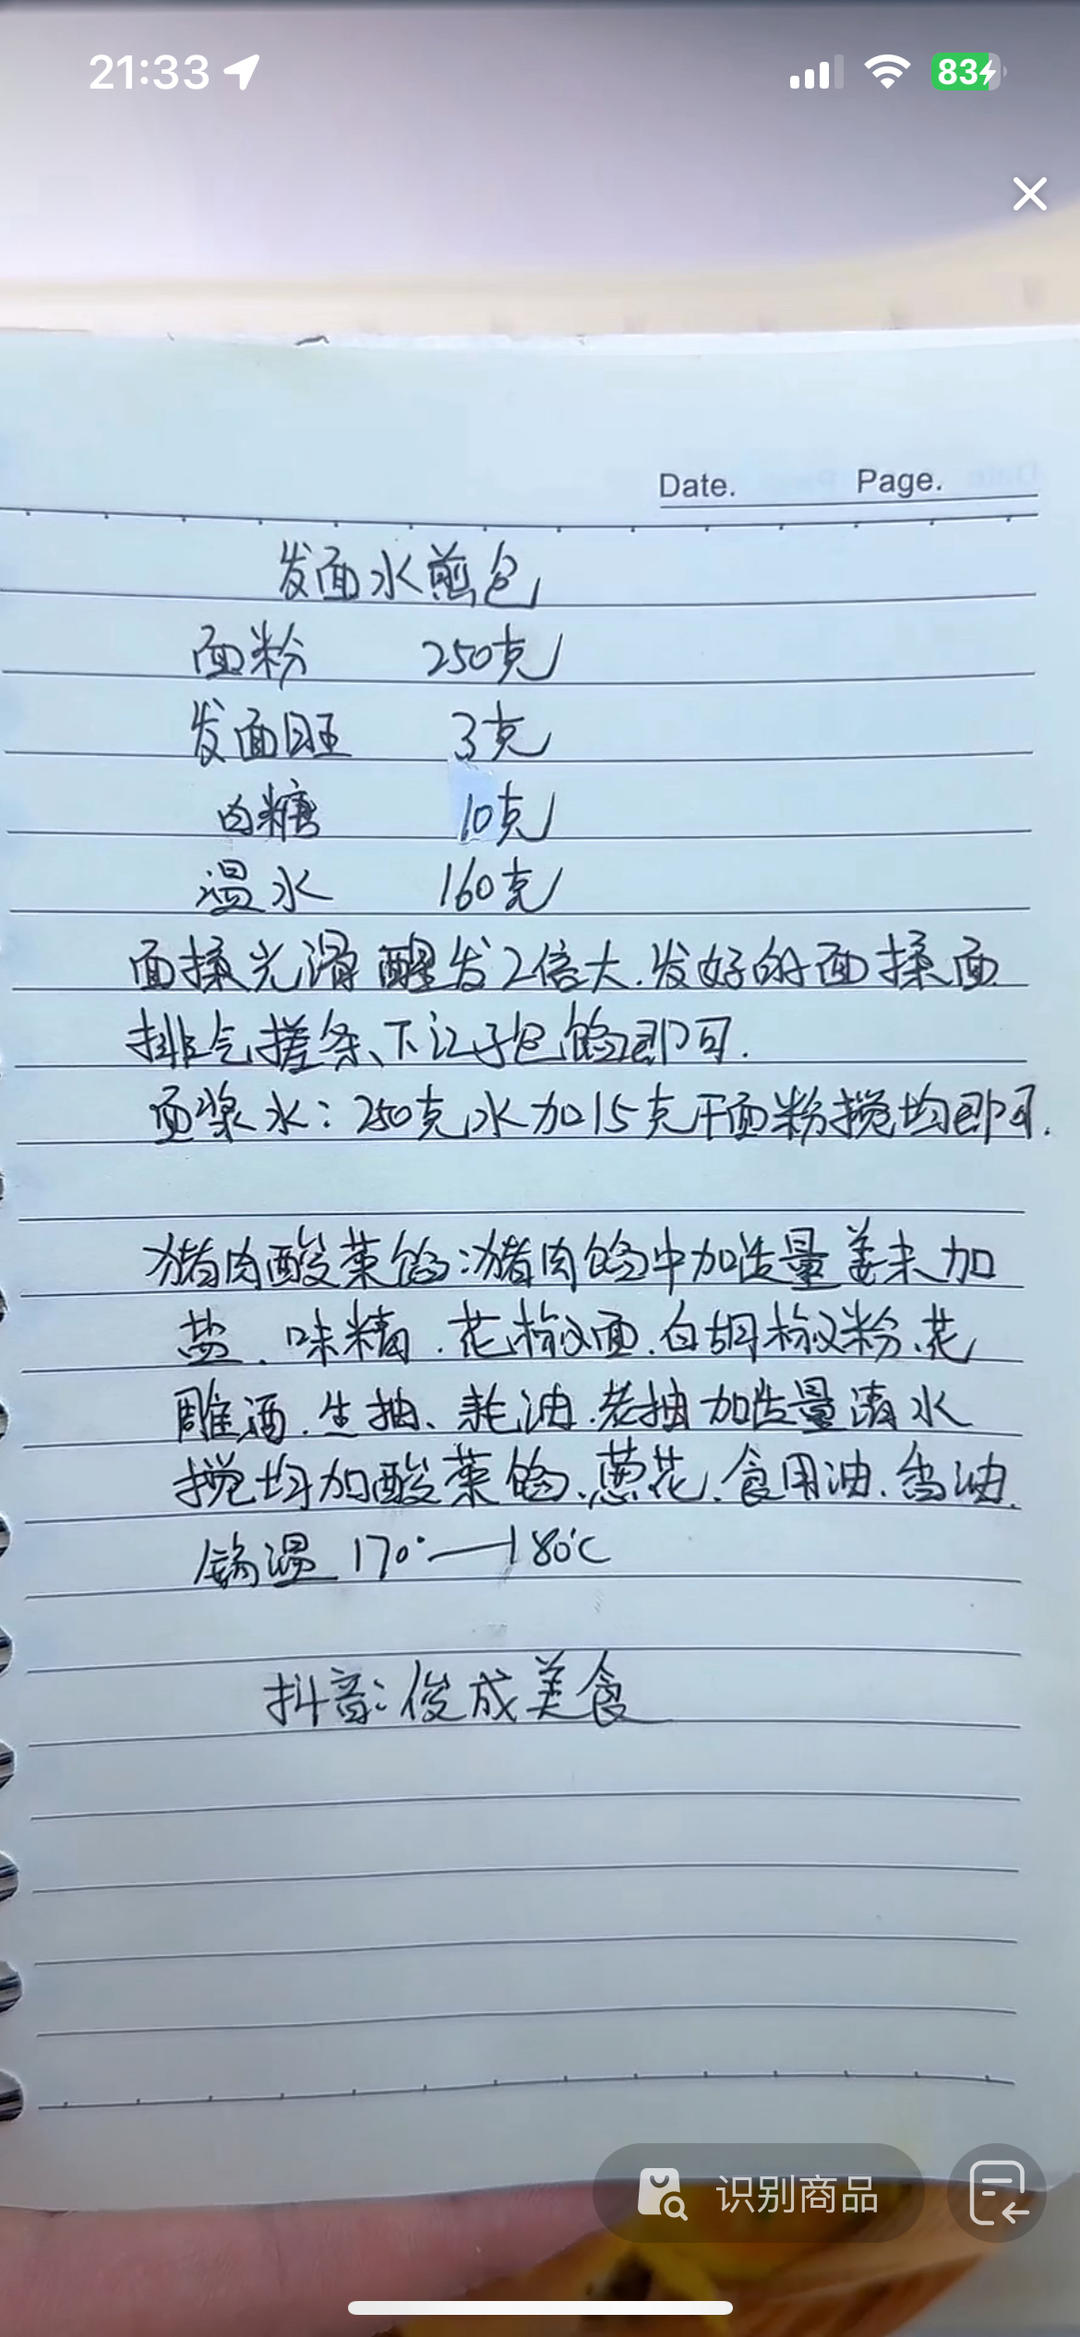 21:33
83
Date. Page.
发面水煎包
面粉 250克
发面旺 3克
白糖 10克
温水 160克
面揉光滑醒发2倍大.发好的面揉面
排气搓条、下记子包馅即可.
面浆水:250克水加15克干面粉搅均即可.
猪肉酸菜馅:猪肉馅中加适量姜末加
盐、味精.花椒面.白胡椒粉、花
雕酒.生抽、耗油.老抽加适量清水
搅均加酸菜馅、葱花、食用油、香油.
锅温 170°—180℃
抖音:俊成美食
识别商品